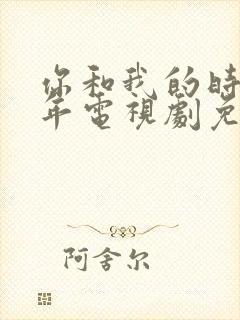 你和我的时
年電視劇免
阿舍尔